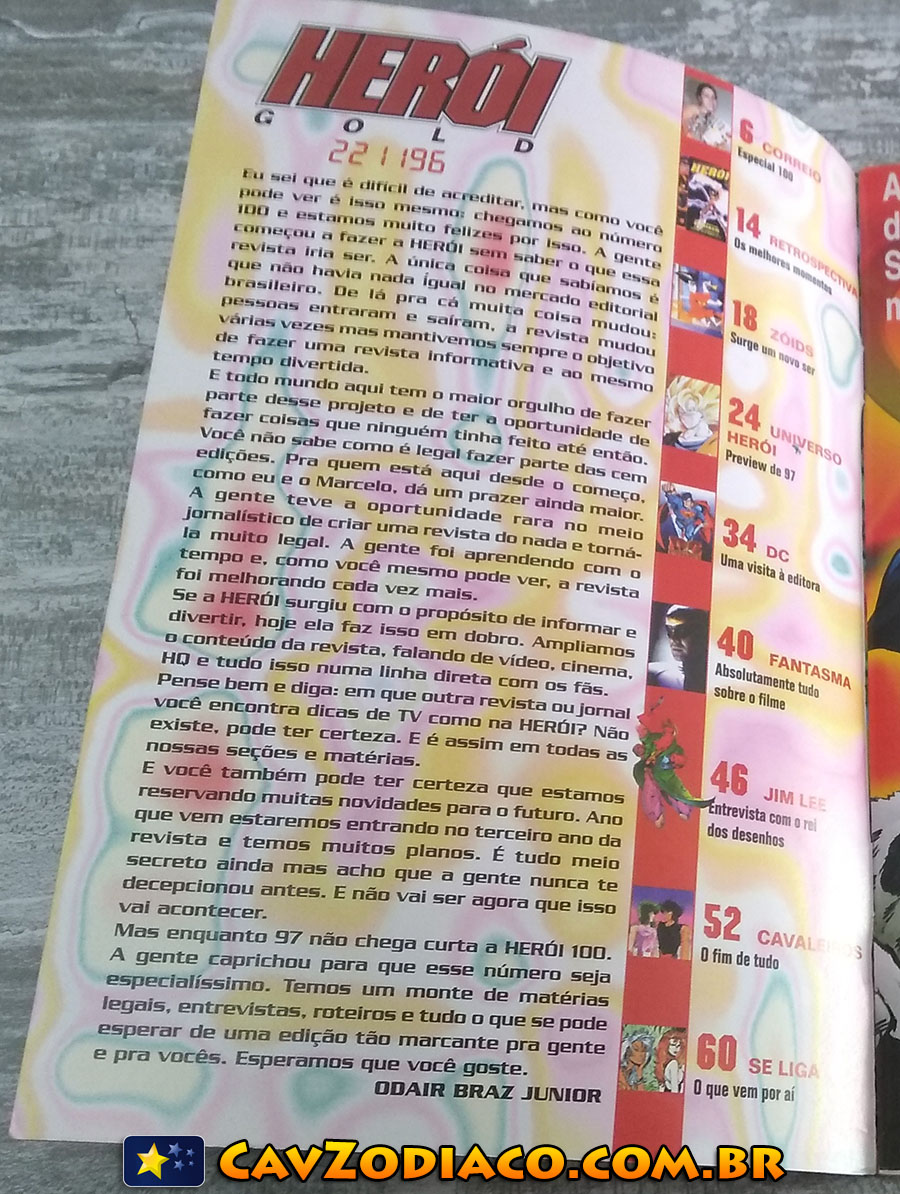 HERÓI
GOLD
221196
Eu sei que é difícil de acreditar, mas como você
pode ver é isso mesmo: chegamos ao número
100 e estamos muito felizes por isso. A gente
começou a fazer a HERÓI sem saber o que essa
revista iria ser. A única coisa que sabíamos é
que não havia nada igual no mercado editorial
brasileiro. De lá pra cá muita coisa mudou:
pessoas entraram e saíram, a revista mudou
várias vezes mas mantivemos sempre o objetivo
de fazer uma revista informativa e ao mesmo
tempo divertida.
E todo mundo aqui tem o maior orgulho de fazer
parte desse projeto e de ter a oportunidade de
fazer coisas que ninguém tinha feito até então.
Você não sabe como é legal fazer parte das cem
edições. Pra quem está aqui desde o começo,
como eu e o Marcelo, dá um prazer ainda maior.
A gente teve a oportunidade rara no meio
jornalístico de criar uma revista do nada e torná-
la muito legal. A gente foi aprendendo com o
tempo e, como você mesmo pode ver, a revista
foi melhorando cada vez mais.
Se a HERÓI surgiu com o propósito de informar e
divertir, hoje ela faz isso em dobro. Ampliamos
o conteúdo da revista, falando de vídeo, cinema,
HQ e tudo isso numa linha direta com os fãs.
Pense bem e diga: em que outra revista ou jornal
você encontra dicas de TV como na HERÓI? Não
existe, pode ter certeza. E é assim em todas as
nossas seções e matérias.
E você também pode ter certeza que estamos
reservando muitas novidades para o futuro. Ano
que vem estaremos entrando no terceiro ano da
revista e temos muitos planos. É tudo meio
secreto ainda mas acho que a gente nunca te
decepcionou antes. E não vai ser agora que isso
vai acontecer.
Mas enquanto 97 não chega curta a HERÓI 100.
A gente caprichou para que esse número seja
especialíssimo. Temos um monte de matérias
legais, entrevistas, roteiros e tudo o que se pode
esperar de uma edição tão marcante pra gente
e pra vocês. Esperamos que você goste.
ODAIR BRAZ JUNIOR
6 CORREIO
Especial 100
HERÓI
14 RETROSPECTIVA
Os melhores momentos
18 ZÓIDS
Surge um novo ser
24 UNIVERSO
HERÓI
Preview de 97
34 DC
Uma visita à editora
40 FANTASMA
Absolutamente tudo
sobre o filme
46 JIM LEE
Entrevista com o rei
dos desenhos
52 CAVALEIROS
O fim de tudo
60 SE LIGA
O que vem por aí
CavZodiaco.com.br